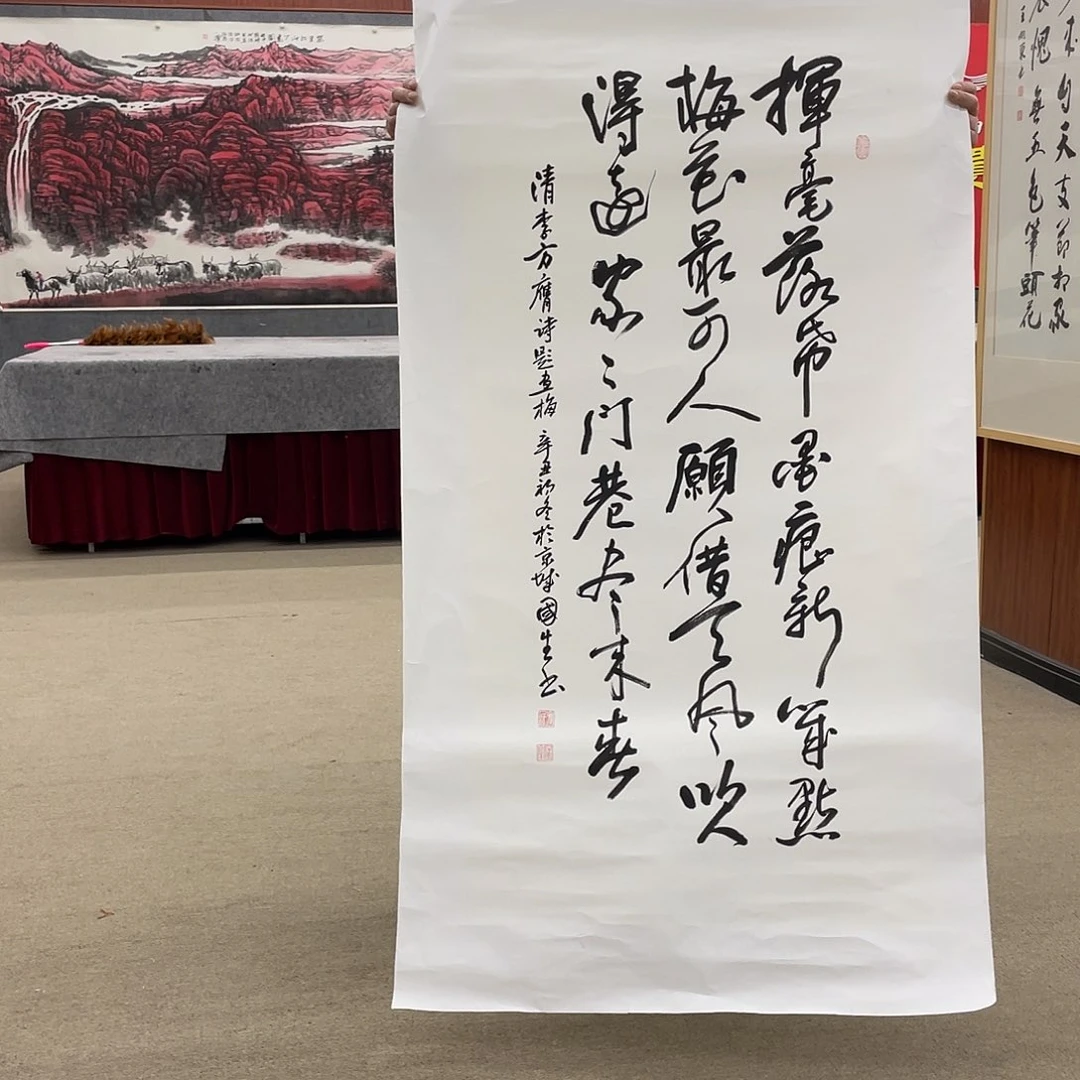 揮毫落帋墨痕新幾點
梅花最可人願借天風吹
得遠家々門巷尽来春
清李方膺诗題画梅 辛丑初冬於京城國生书
愧無五色筆頭花